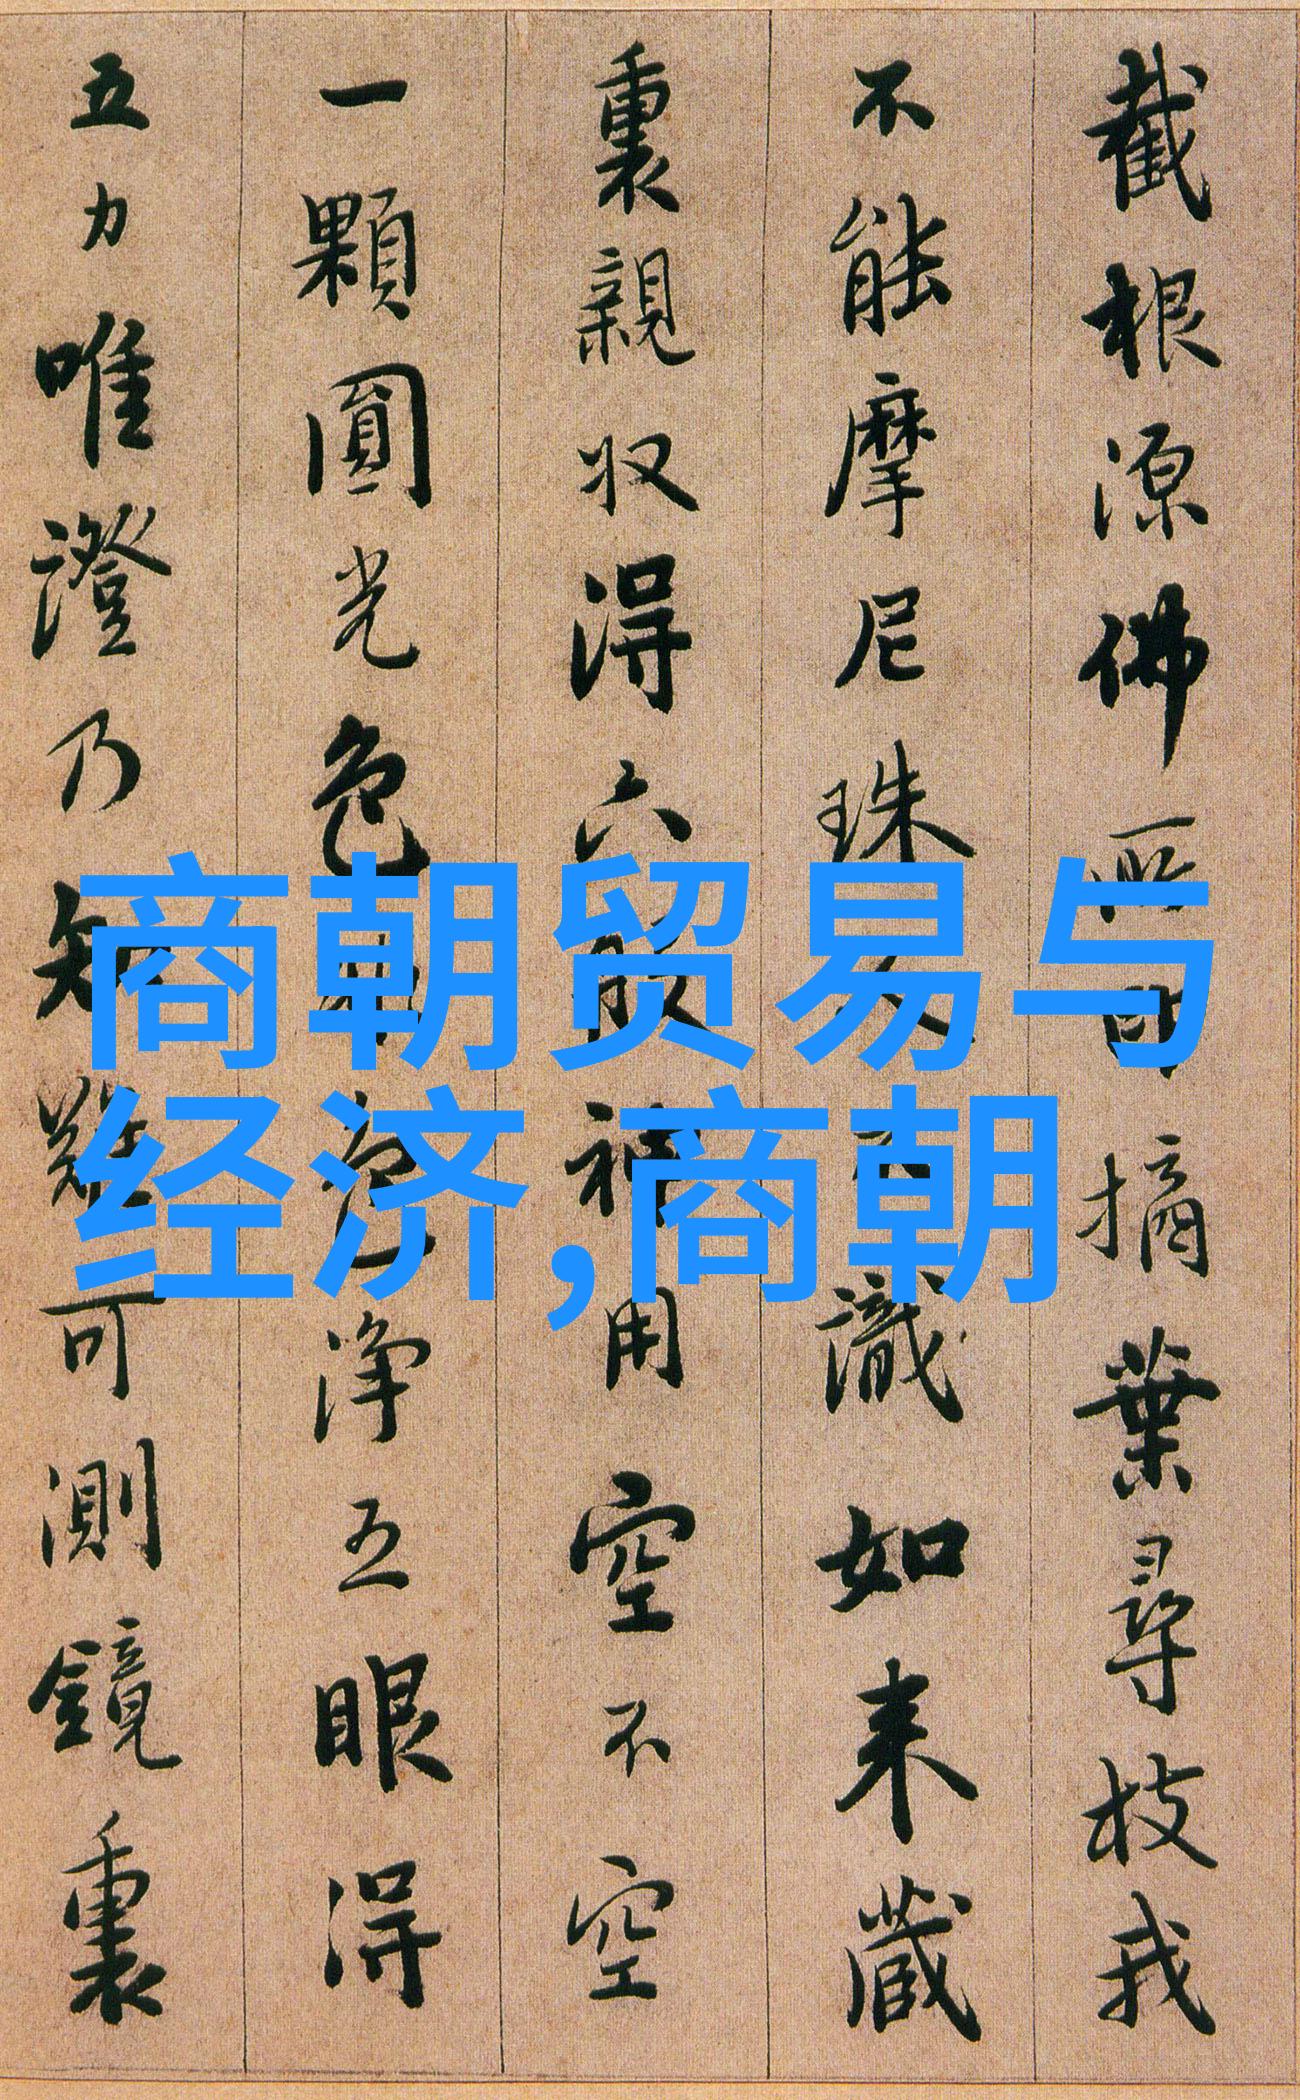 截根源佛所印摘葉尋枝我
不能摩尼珠人不識如来藏
裏親収得六般神用空不空
一顆圓光色非色淨五眼得
五力唯證乃知難可測鏡裏
商朝贸易与
经济,商朝